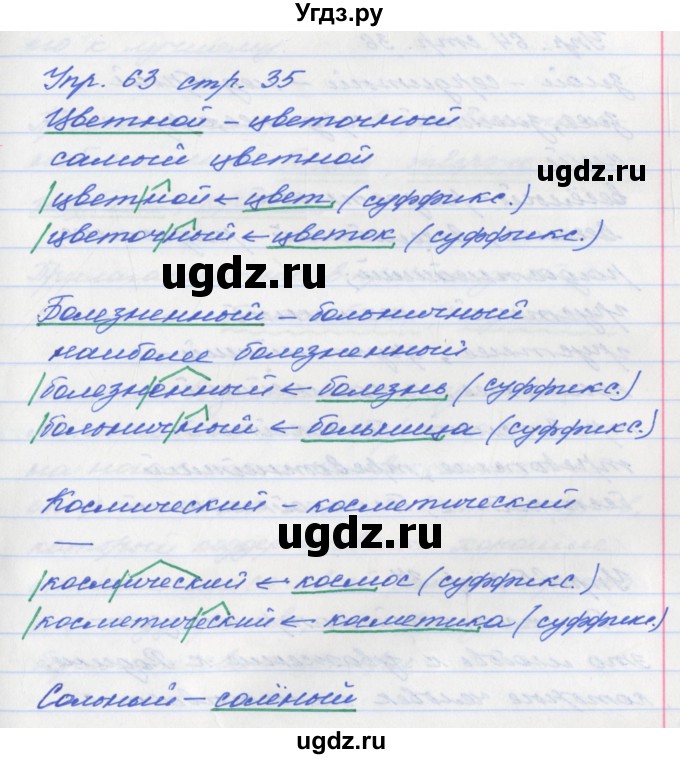 Угдз.ру
Упр. 63 стр. 35
Цветной – цветочный
самый цветной
цветной ← цвет (суффикс.)
цветочный ← цветок (суффикс.)
Болезненный – больничный
наиболее болезненный
болезненный ← болезнь (суффикс.)
больничный ← больница (суффикс.)
Космический – косметический
—
космический ← космос (суффикс.)
косметический ← косметика (суффикс.)
Сольный – солёный
ugdz.ru
ugdz.ru
ugdz.ru
ugdz.ru